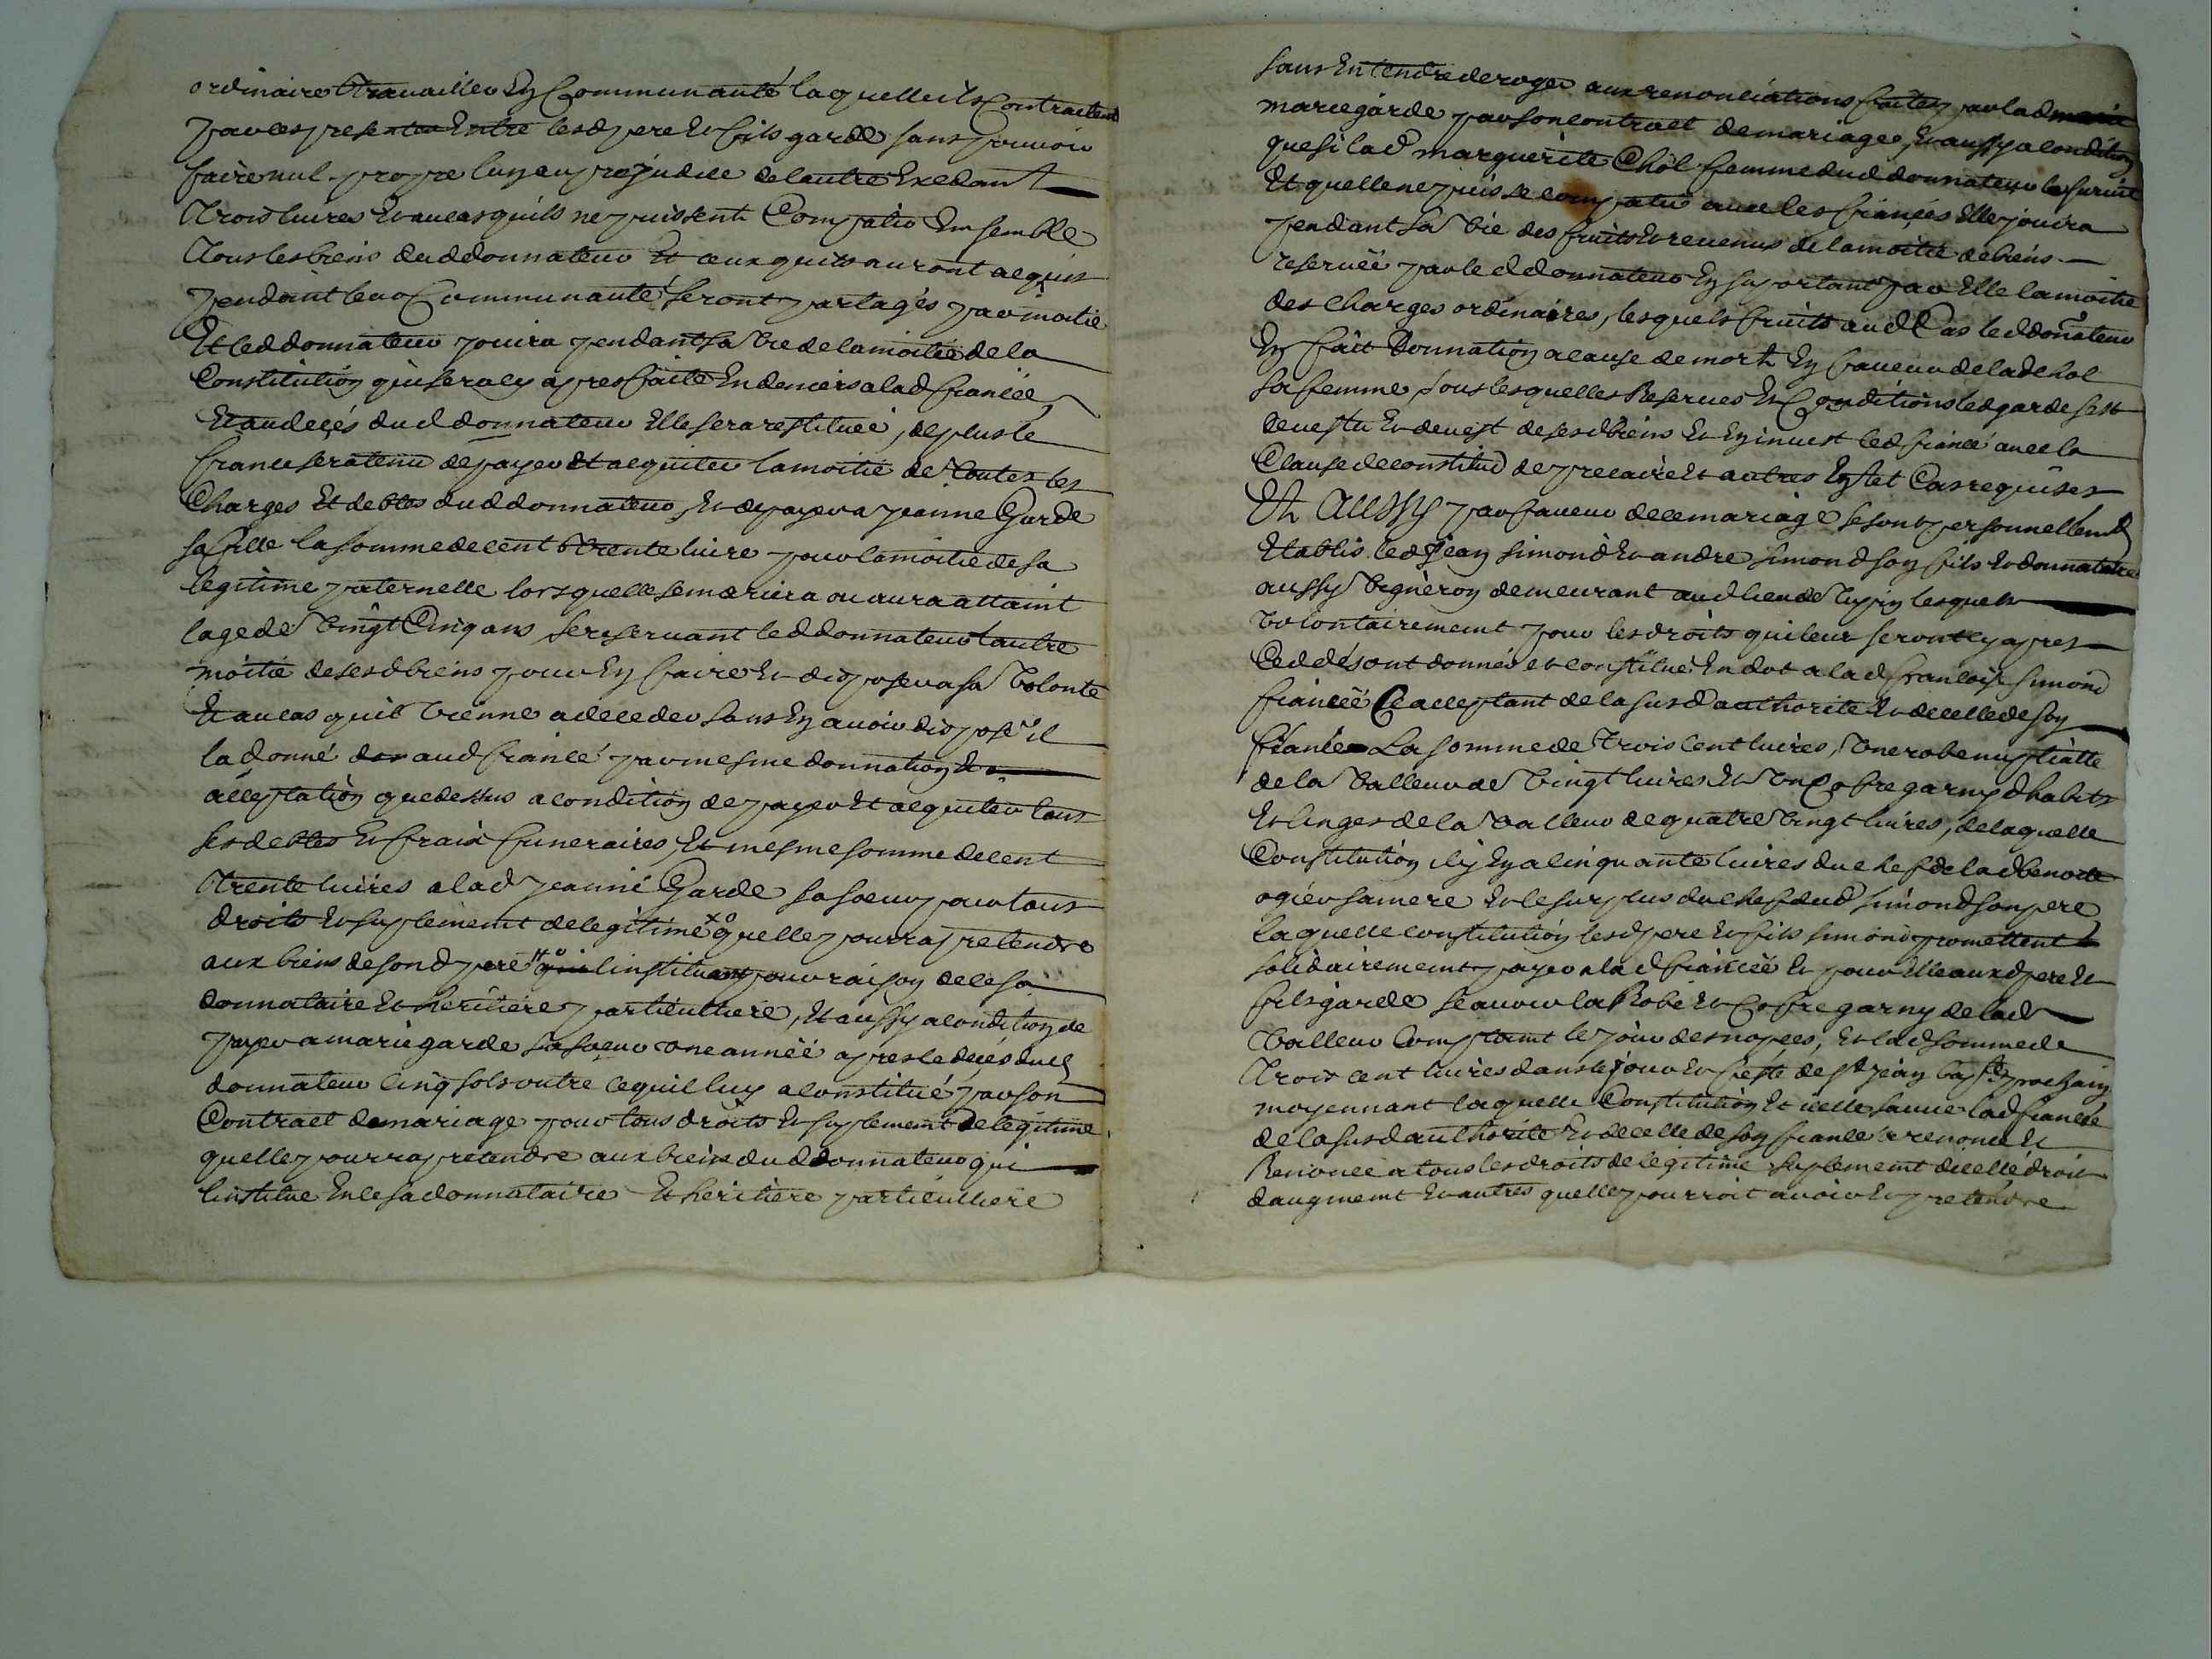 ordinaire Travailler En Communauté laquelle ils Contractent
par ces presentes Entre lesd pere Et fils garde sans pouvoir
faire nul propre luy au prejudice de lautre Excedant
Trois livres Et au cas quils ne puissent Compatir Ensemble
Tous les biens dud donnateur Et ceux quils auront acquis
pendant leur Communauté seront partagés par moitié
Et led donnateur jouira pendant sa vie de lamoitié de la
Constitution qui sera cy apres faite En deniers a lad fiancée
Et au decés dud donnateur Elle sera restituée, de plus le
fiancé sera tenu de payer Et acquiter la moitié de Toutes les
Charges Et debtes dud donnateur, Et de payer a jeanne Garde
sa fille la somme de cent Trente livre pour lamoitié de sa
legitime paternelle lors quelle semariera ou aura attaint
lage de vingt Cinq ans se reservant led donnateur lautre
moitié desesd biens pour En faire Et disposer a sa volonté
Et au cas quil vienne a deceder sans En avoir disposé il
la donné aud fiancé par mesme donnation Et
acceptation que dessus a condition de payer Et acquiter tous
ses debtes Et fraix funeraires, Et mesme somme de cent
Trente livres a lad jeanne Garde sa soeur pour tous
droits Et suplement de legitime quelle pourra pretendre
aux biens de sond pere linstituant pour raison de ce sa
donnataire Et heritiere particulliere, Et aussy a condition de
payer a marie garde sa soeur une année apres le decés dud
donnateur cinq sols outre ce quil luy a constitué par son
Contract de mariage pour tous droits Et suplement de legitime
quelle pourra pretendre aux biens dud donnateur qui
linstitue En ce sa donnataire Et heritiere particulliere
sans Entendre deroger aux renonciations faites par lad
marie garde par son contract de mariage, Et aussy a condition
que si lad marguerite Chol femme dud donnateur le survit
Et quelle ne puisse compatir avec les fiancés Elle jouira
pendant sa vie des fruits Et revenus de lamoitié de biens
reservée par led donnateur En suportant par Elle lamoitié
des Charges ordinaires, lesquels fruits aud Cas led donnateur
En fait Donnation a cause de mort En faveur de lad Chol
sa femme sous lesquelles Reserves Et Conditions led garde sest
devestu Et devest de sesd biens Et En invest led fiancé avec la
Clause de constitud de precaire Et autres En tel Cas requises
Et Aussy par faveur de ce mariage se sont personnellemt
Etablis led jean simond Et andre simond son fils Et donnataire
aussy vigneron demeurant aud lieu de Tupin lesquels
volontairement pour les droits qui leur seront cy apres
Ceddés ont donnés et constitué En dot a lad francoise simond
fiancée Ce acceptant de la susd authorité Et de celle de son
fiancé La somme de Trois cent livres, une robe nuptialle
de la valleur de vingt livres Et un Cofre garny d habits
Et linges de la valleur de quatre vingt livres, de laquelle
Constitution il y En a cinquante livres du chef de lad benoite
ogier sa mere Et le surplus du chef dud simond son pere
laquelle constitution lesd pere Et fils simond promettent
solidairement payer a lad fiancée Et pour Elle aux d pere Et
fils garde scavoir la Robe Et Cofre garny de lad
valleur Comptant le jour des nopces, Et lad somme de
Trois cent livres dans le jour Et feste de st jean bapte prochain
moyennant laquelle Constitution Et icelle sauve lad fiancée
de la susd authorité Et de celle de son fiancé a renoncé Et
Renonce a tous les droits de legitime suplement dicelle droit
daugment Et autres quelle pourroit avoir Et pretendre